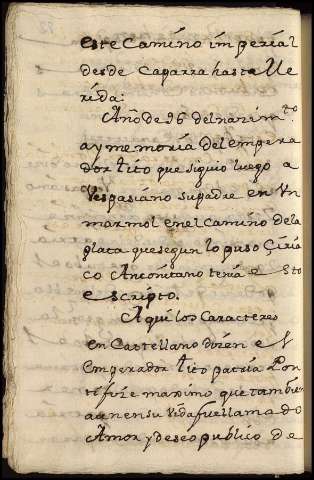 este camino imperial
desde caparra hasta Me
rida:
Año de 96 del nacim.to
ay memoria del empera
dor tito que siguio luego a
Vespasiano su padre en un
marmol en el camino dela
plata que segun lo puso Çiria
co Anconitano tenia e sto
escripto.
Aqui los Caracteres
en Castellano dizen el
Emperador tito patria Pon
tifize maximo que tambi
aan en su Vida fue llamado
Amor y deseo publico de